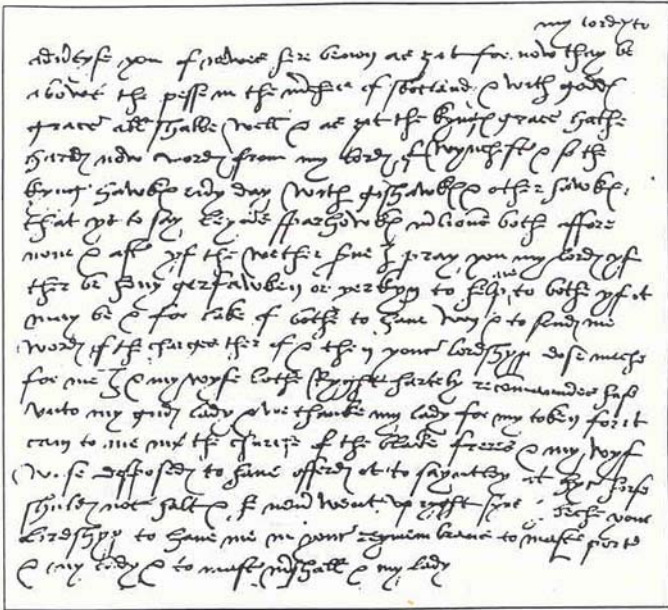 my lord to
advertyse you of newes here nown as yit for now thay be
abowt the pesse in the m'ches of scotland & with goddes
grace all shalbe well & as yit the kynges grace hathe
hard now word from my lord of Wynchest' & so the
kyng hawkes evry day with goshawkes & other hawkes
that ys to say layners sparhawkes m'lions both affore
none & aft' yf the wether serve I pray you my lord yf
ther be hony gerfawken or yerkyn to help me to bothe yf it
may be & for lake of bothe to have wun & to send me
word of the charges ther of & then your lordshyp dose meche
for me I & my wyfe bothe Ryght hartely recommaundes hus
unto my gud lady & we thanke my lady for my token for it
cam to me in the churche of the blake freres & my wyf
wose desposed to have offerd it to saynt loy at hyr horse
shuld not halt & he never went up ryght syne I beseche your
Lordshyp to have me in your remembrance to mast' porter
& my lady & to mast' m'shall & my lady